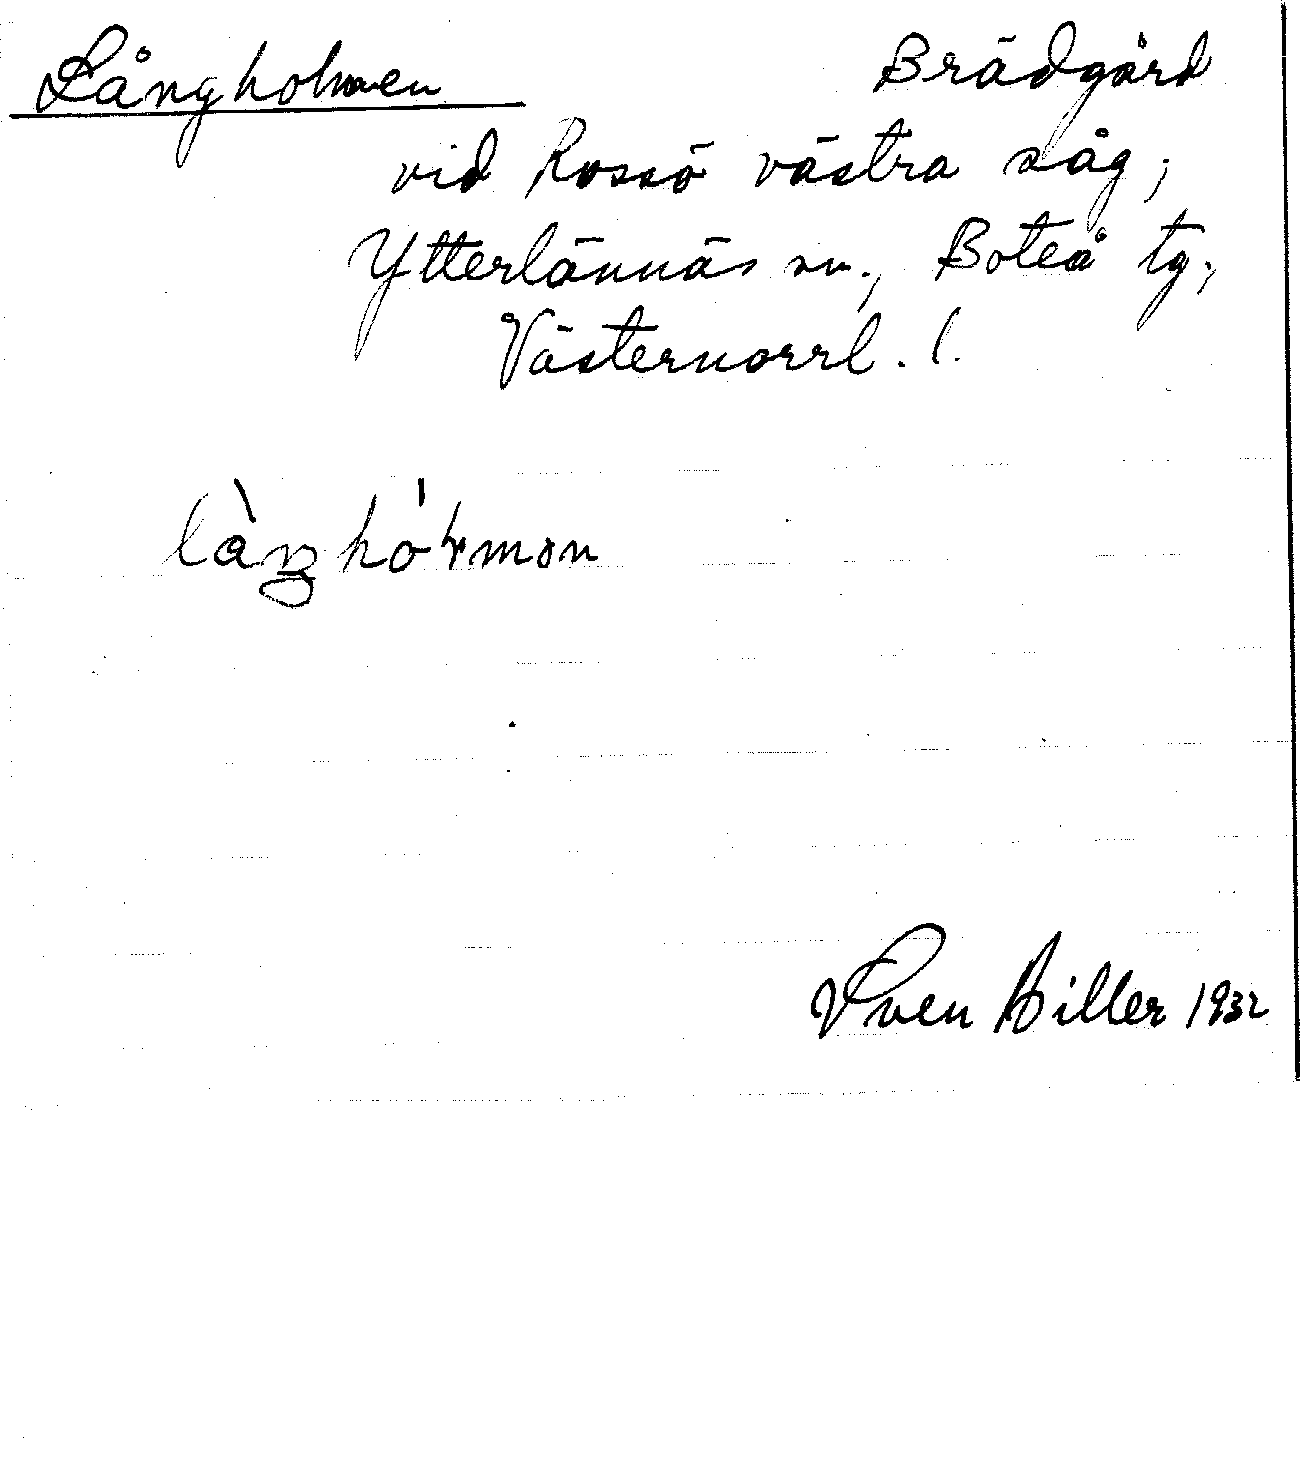 Långholmen Brädgård
vid Rossö västra såg,
Ytterlännäs sn., Boteå tg,
Västernorrl. l.
Sven Hiller 1932